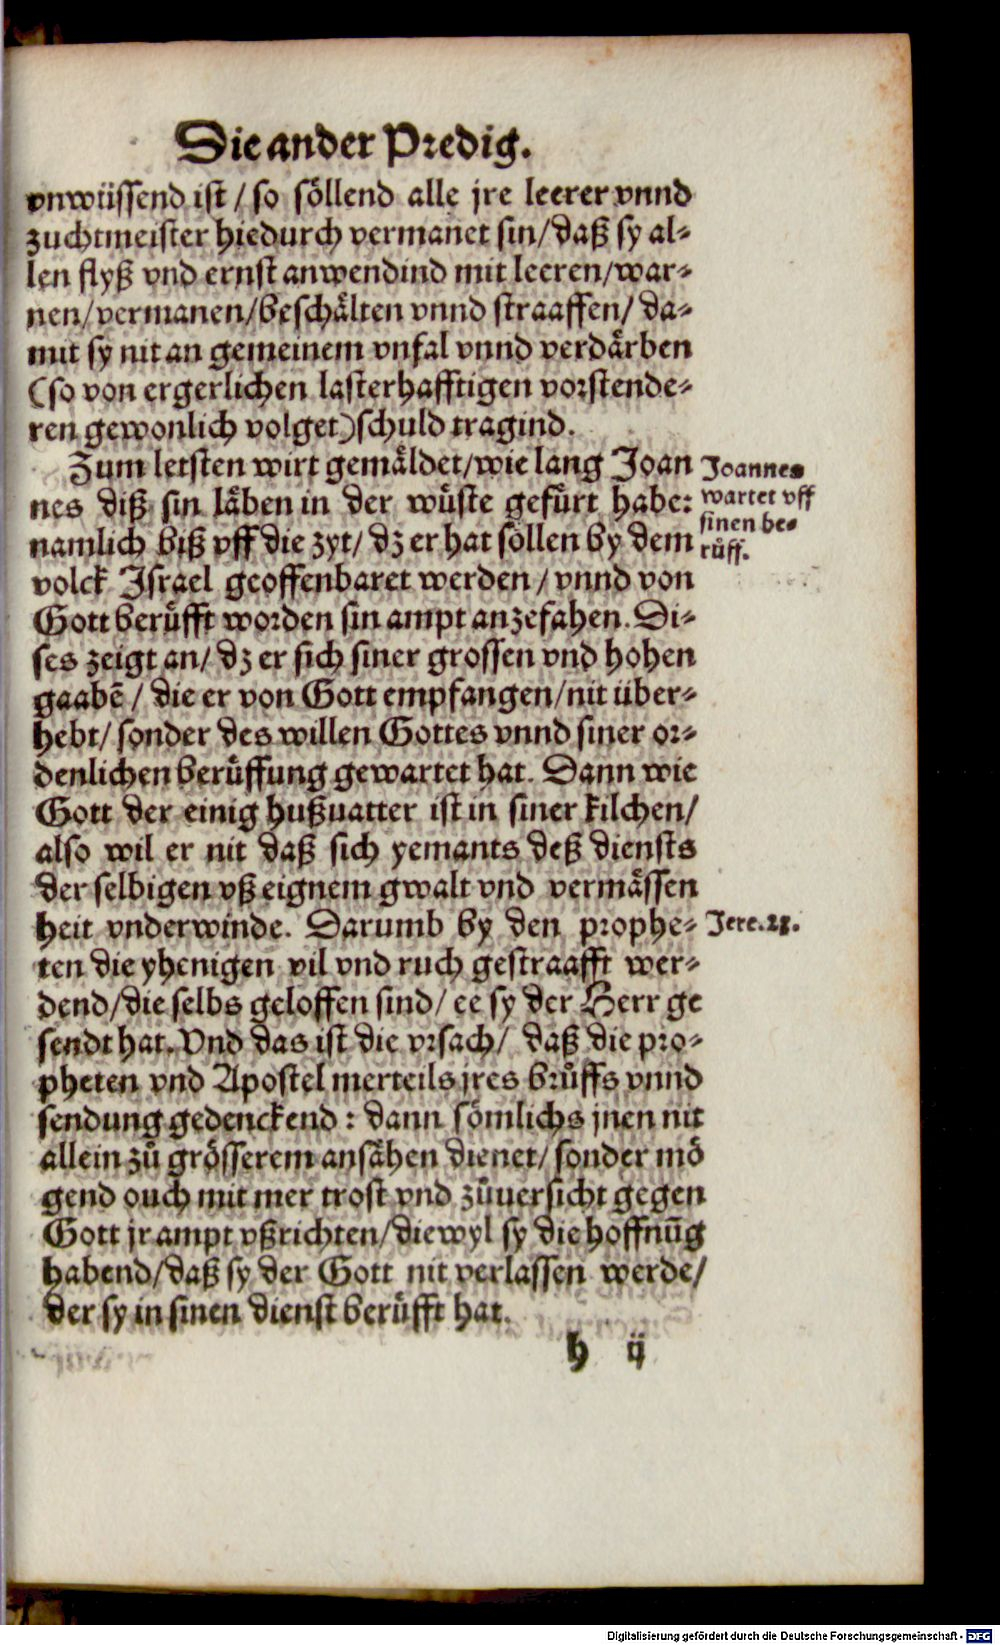 Die ander Predig.
vnwüssend ist / so söllend alle jre leerer vnnd
zuchtmeister hiedurch vermanet sin/daß sy al⸗
len flyß vnd ernst anwendind mit leeren/war⸗
nen/vermanen/beschälten vnnd straaffen/ da⸗
mit sy nit an gemeinem vnfal vnnd verdärben
(so von ergerlichen lasterhafftigen vorstende⸗
ren gewonlich volget)schuld tragind.
Zum letsten wirt gemäldet/wie lang Joan
nes diß sin läben in der wůste gefürt habe:
namlich biß vff die zyt/ dz er hat söllen by dem
volck Israel geoffenbaret werden / vnnd von
Gott berůfft worden sin ampt anzefahen. Di⸗
ses zeigt an/ dz er sich siner grossen vnd hohen
gaabē / die er von Gott empfangen/nit über⸗
hebt/ sonder des willen Gottes vnnd siner or⸗
denlichen berůffung gewartet hat. Dann wie
Gott der einig hußuatter ist in siner kilchen/
also wil er nit daß sich yemants deß diensts
der selbigen vß eignem gwalt vnd vermässen
heit vnderwinde. Darumb by den prophe⸗
ten die yhenigen vil vnd ruch gestraafft wer⸗
dend/die selbs geloffen sind/ ee sy der Herr ge
sendt hat. Vnd das ist die vrsach/ daß die pro⸗
pheten vnd Apostel merteils jres brůffs vnnd
sendung gedenckend : dann sömlichs jnen nit
allein zů grösserem ansähen dienet/ sonder mö
gend ouch mit mer trost vnd zůuersicht gegen
Gott jr ampt vßrichten/diewyl sy die hoffnūg
habend/daß sy der Gott nit verlassen werde/
der sy in sinen dienst berůfft hat.
h ij
Joannes
wartet vff
sinen be⸗
růff.
Jere.23.
Digitalisierung gefördert durch die Deutsche Forschungsgemeinschaft - DFG